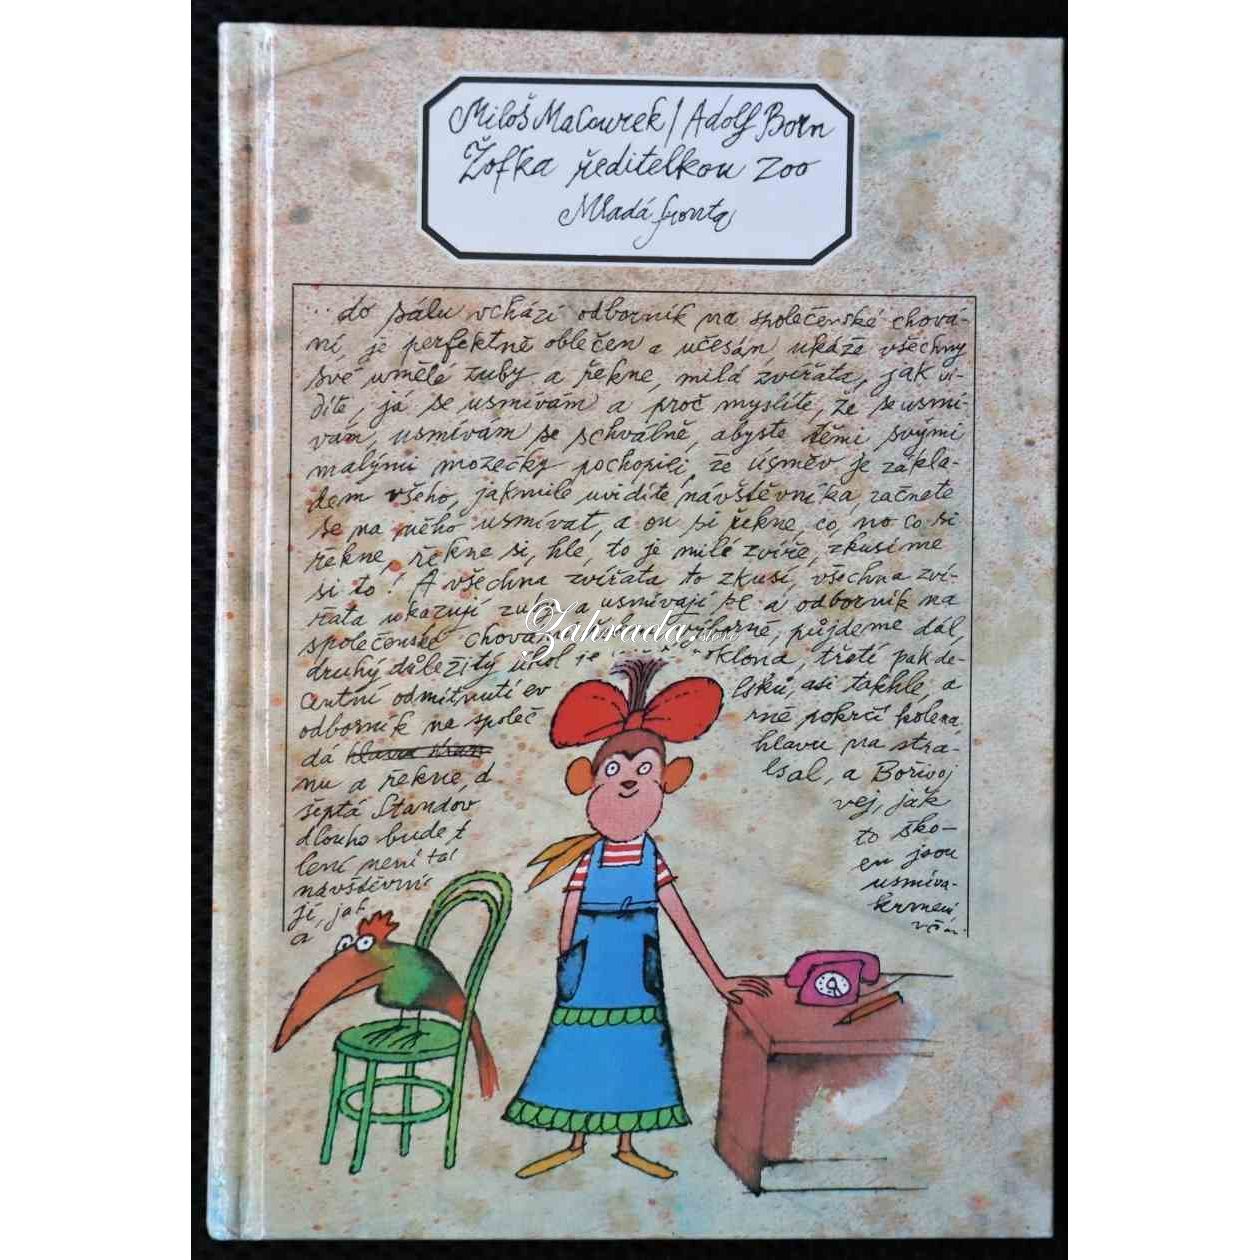 Miloš Macourek/Adolf Born
Žofka ředitelkou zoo
Mladá fronta
...do sálu vchází odborník na společenské chová-
ní, je perfektně oblečen a učesán, ukáže všechny
své umělé zuby a řekne, milá zvířata, jak vi-
díte, já se usmívám a proč myslíte, že se usmí-
vám, usmívám se schválně, abyste těmi svými
malými mozečky pochopili, že úsměv je zákla-
dem všeho, jakmile uvidíte návštěvníka, začnete
se na něho usmívat, a on si řekne, co, no co si
řekne, řekne si, hle, to je milé zvíře, zkusíme
si to! A všechna zvířata to zkusí, všechna zví-
řata ukazují zuby a usmívají se a odborník na
společenské chování výborně, půjdeme dál,
druhý důležitý úkol je úklona, třetí pak de-
centní odmítnutí lsků, asi takhle, a
odborník na společ rně pokrčí kolena,
dá hlavu na stra-
nu a řekne, d lsal, a Bořivoj
šeptá Standov vej, jak
dlouho bude t to ško-
lení není ta en jsou
návštěvní usmíva-
jí, jak krmení,
a
Zahrada.store